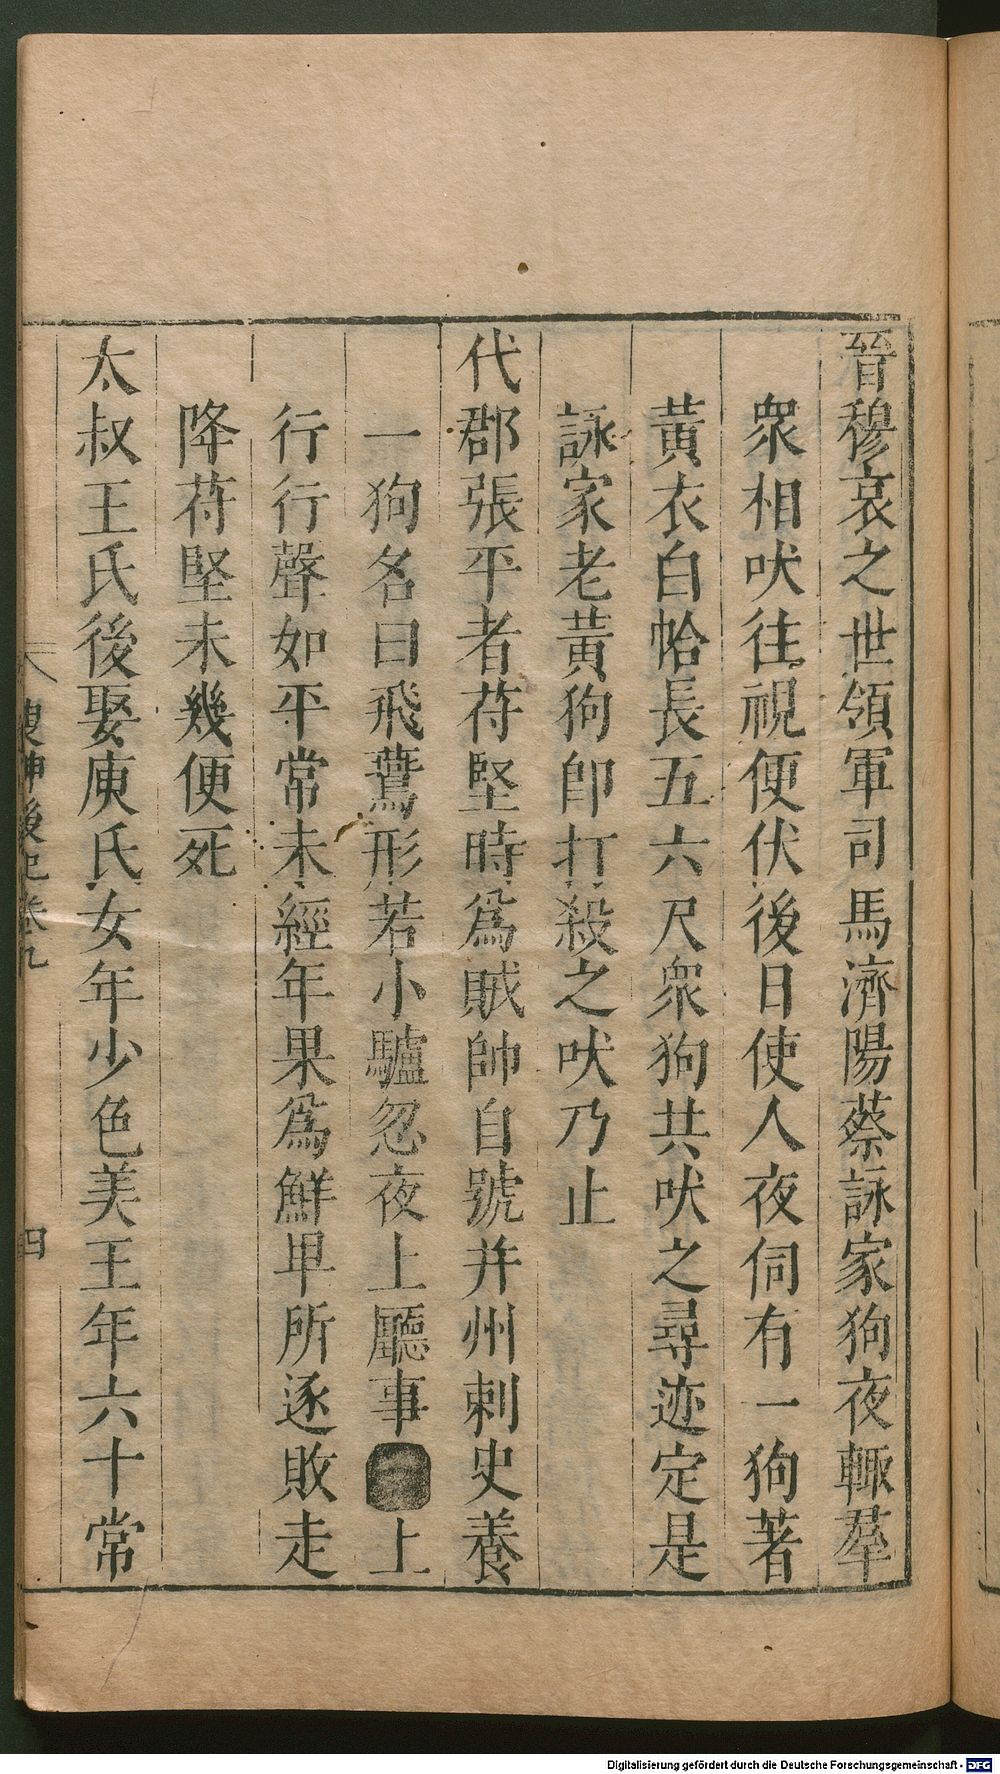 晉穆哀之世領軍司馬濟陽蔡詠家狗夜輙羣
衆相吠往視便伏後日使人夜伺有一狗著
黃衣白帢長五六尺衆狗共吠之尋迹定是
詠家老黃狗卽打殺之吠乃止
代郡張平者苻堅時爲賊帥自號并州刺史養
一狗名曰飛鷰形若小驢忽夜上廳事上
行行聲如平常未經年果爲鮮卑所逐敗走
降苻堅未幾便死
太叔王氏後娶庾氏女年少色美王年六十常
搜神後記卷九
四
Digitalisierung gefördert durch die Deutsche Forschungsgemeinschaft - DFG